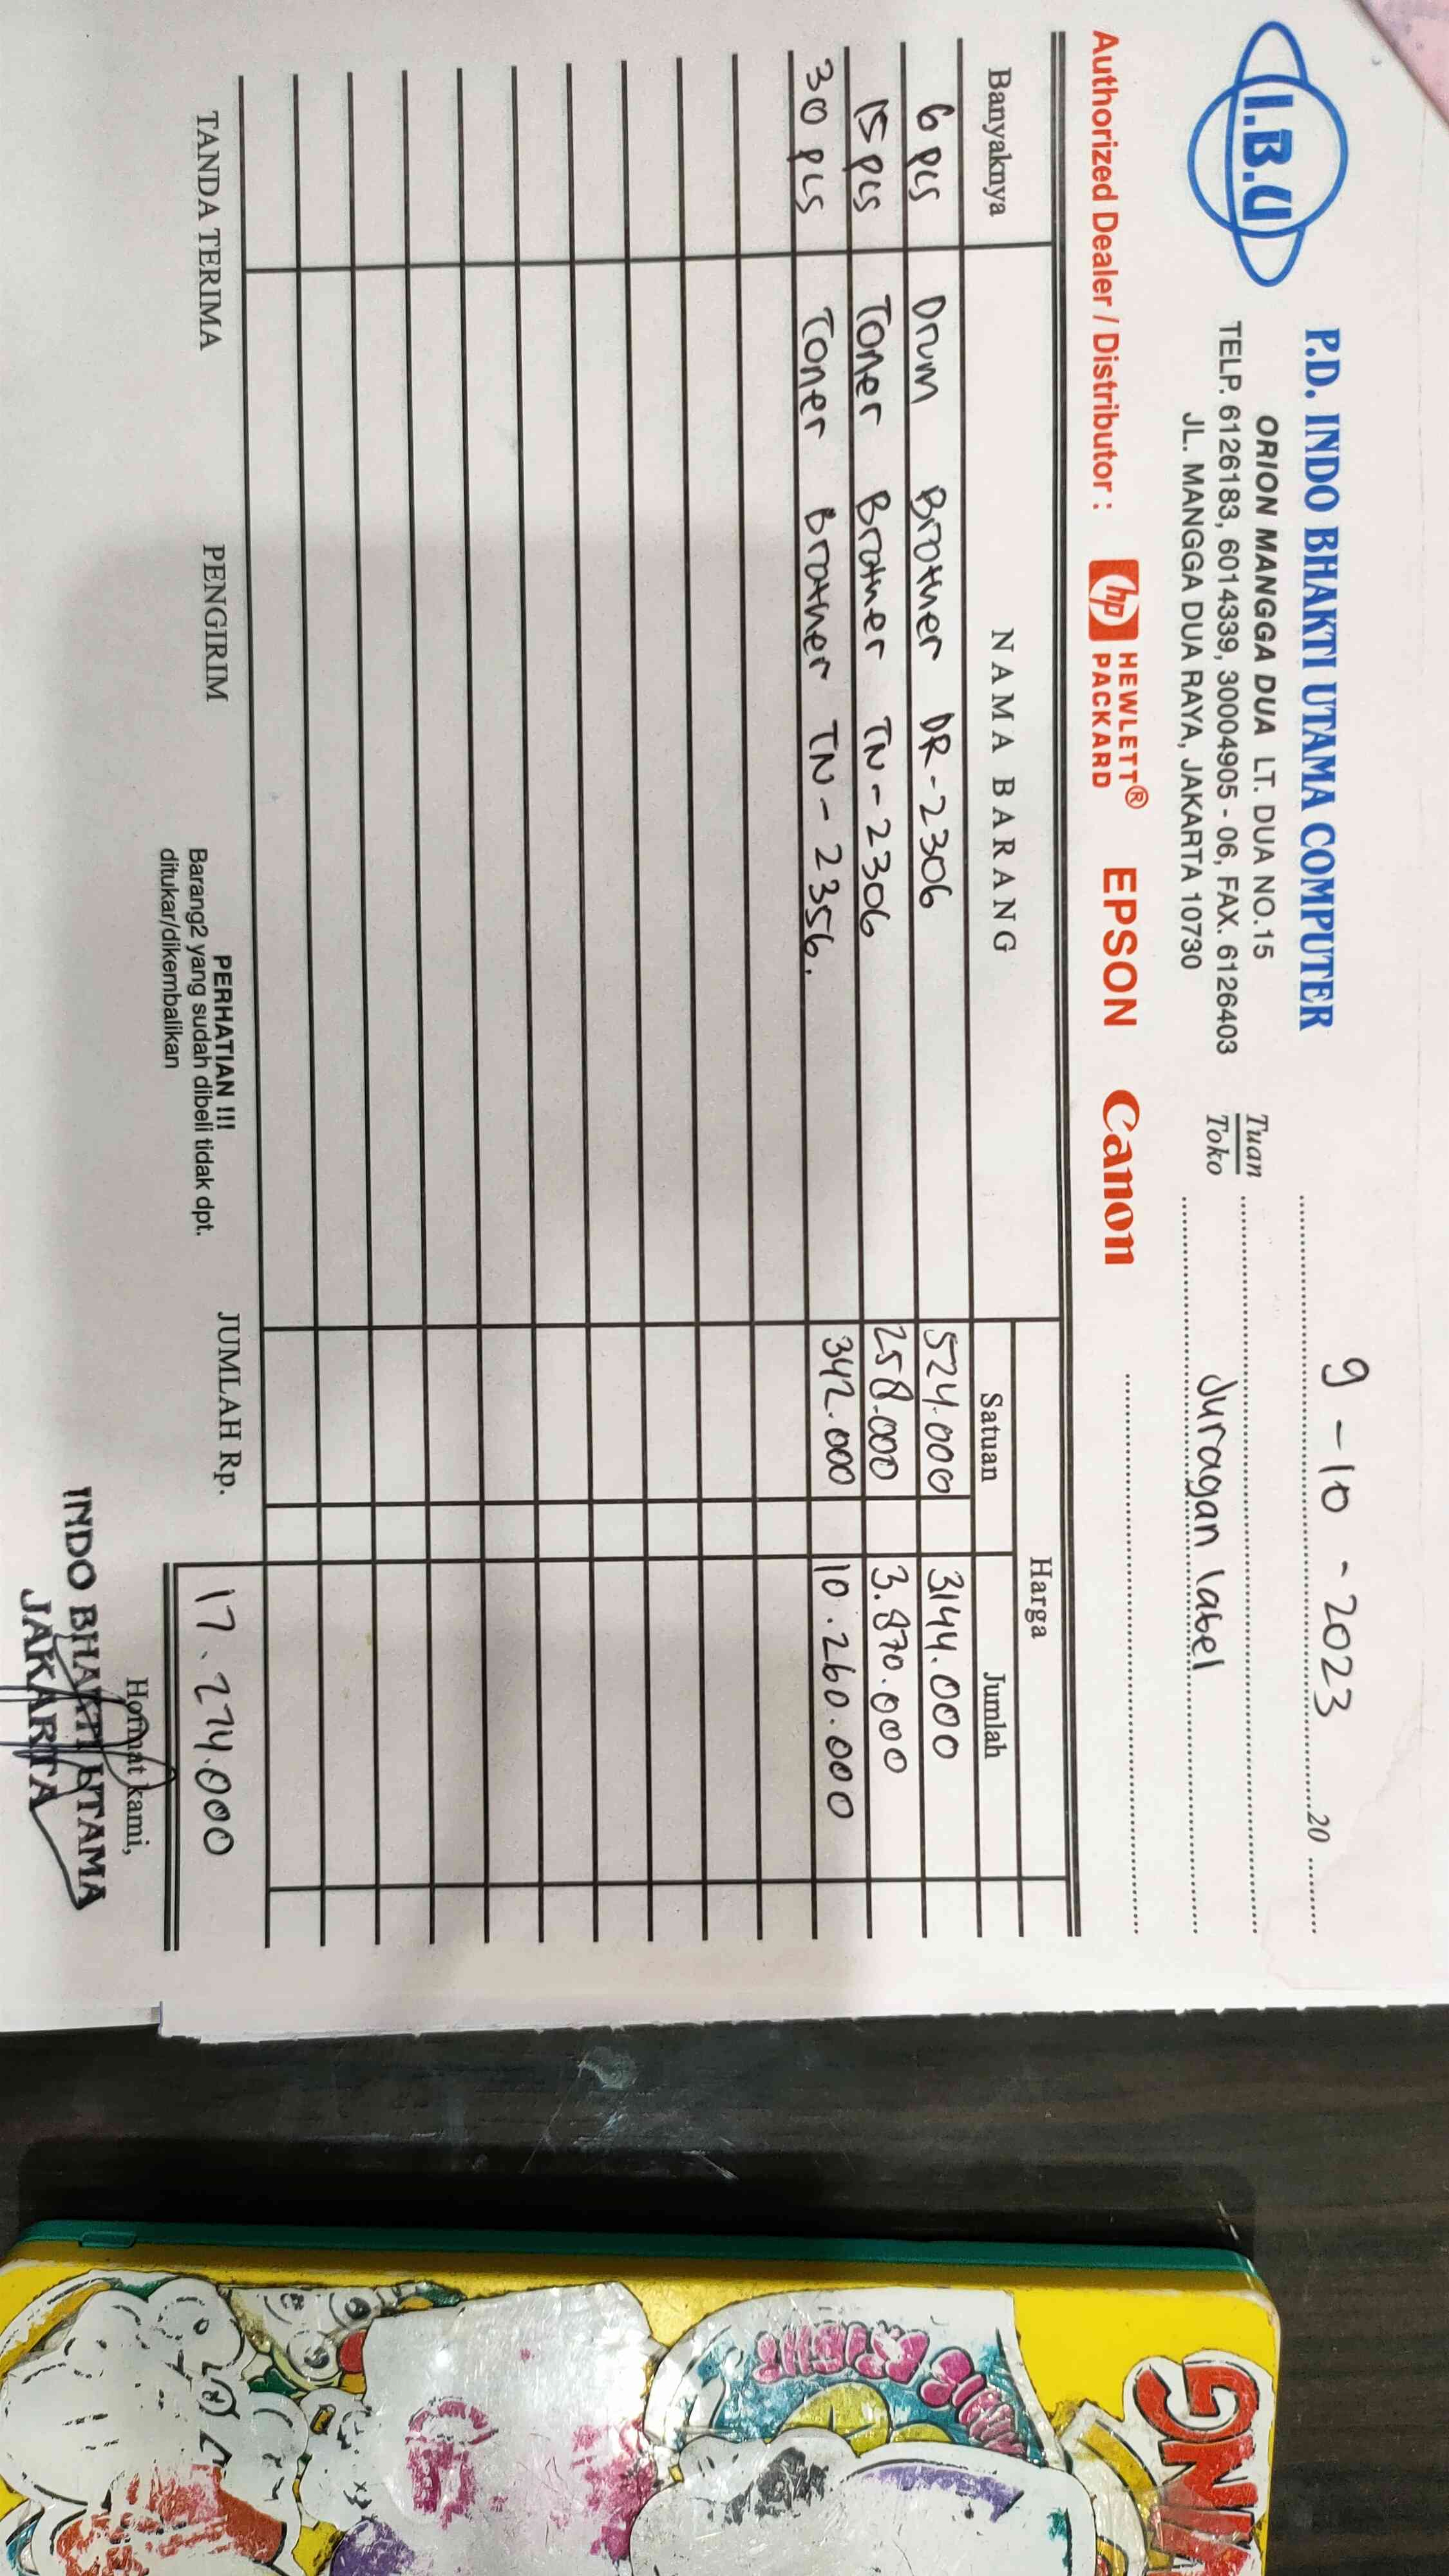 I.B.U
P.D. INDO BHAKTI UTAMA COMPUTER
ORION MANGGA DUA LT. DUA NO.15
TELP. 6126183, 6014339, 30004905 - 06, FAX. 6126403
JL. MANGGA DUA RAYA, JAKARTA 10730
9 - 10 - 2023 20
Tuan
Toko
Juragan label
Authorized Dealer / Distributor : hp HEWLETT® PACKARD EPSON Canon
Banyaknya NAMA BARANG Harga
Satuan Jumlah
6 pcs Drum Brother DR-2306 524.000 3144.000
15 pcs Toner Brother TN-2306 258.000 3.870.000
30 pcs Toner Brother TN-2356. 342.000 10.260.000
TANDA TERIMA PENGIRIM JUMLAH Rp. 17.274.000
PERHATIAN !!!
Barang2 yang sudah dibeli tidak dpt.
ditukar/dikembalikan
Hormat kami,
INDO BHAKTI UTAMA
JAKARTA